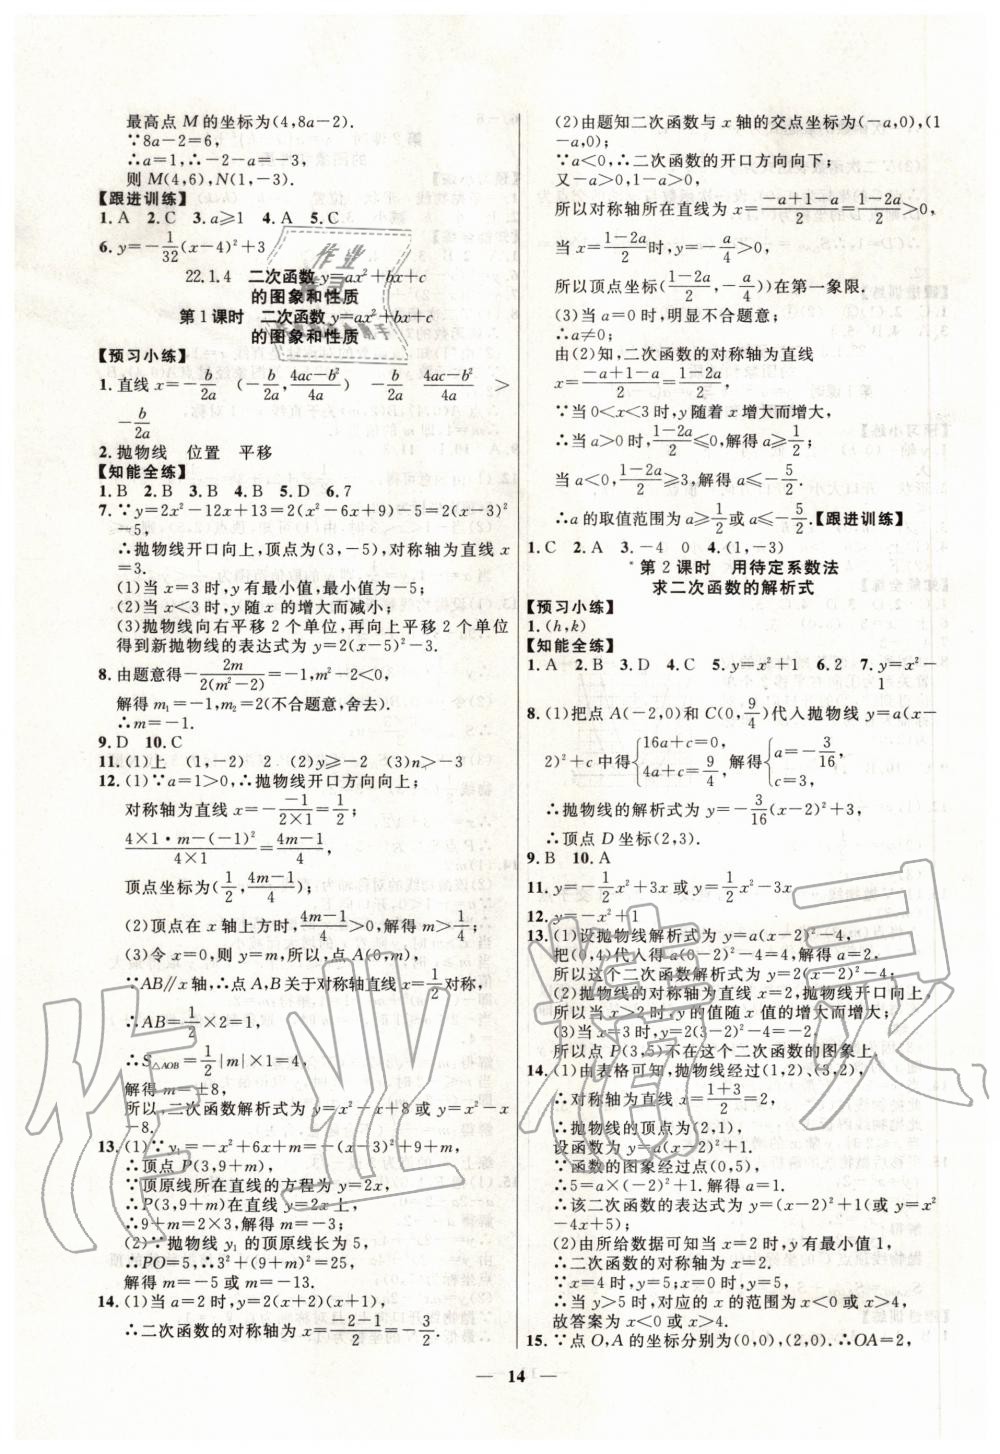 最高点 M 的坐标为(4,8a-2).
∵8a-2=6,
∴a=1,∴-2-a=-3,
则 M(4,6),N(1,-3).
【跟进训练】
1. A 2. C 3. a≥1 4. A 5. C
6. y=-1/32(x-4)²+3
22.1.4 二次函数 y=ax²+bx+c
的图象和性质
第 1 课时 二次函数 y=ax²+bx+c
的图象和性质
【预习小练】
1. 直线 x=-b/2a (-b/2a, (4ac-b²)/4a) -b/2a (4ac-b²)/4a >
-b/2a
2. 抛物线 位置 平移
【知能全练】
1. B 2. B 3. B 4. B 5. D 6. 7
7. ∵y=2x²-12x+13=2(x²-6x+9)-5=2(x-3)²
-5,
∴抛物线开口向上,顶点为(3,-5),对称轴为直线 x
=3.
(1)当 x=3 时,y 有最小值,最小值为-5.
(2)当 x<3 时,y 随 x 的增大而减小;
(3)抛物线向右平移 2 个单位,再向上平移 2 个单位
得到新抛物线的表达式为 y=2(x-5)²-3.
8. 由题意得-2m/2(m²-2)=-1,m²-2<0,
解得 m₁=-1,m₂=2(不合题意,舍去).
∴m=-1.
9. D 10. C
11. (1)上 (1,-2) 2 (2)y≥-2 (3)n>-3
12. (1)∵a=1>0,∴抛物线开口方向向上;
对称轴为直线 x=-(-1)/(2×1)=1/2;
(4×1·m-(-1)²)/(4×1)=(4m-1)/4,
顶点坐标为(1/2,(4m-1)/4).
(2)顶点在 x 轴上方时,(4m-1)/4>0,解得 m>1/4,
(3)令 x=0,则 y=m,所以,点 A(0,m),
∵AB∥x 轴,∴点 A,B 关于对称轴直线 x=1/2对称,
∴AB=1/2×2=1,
∴S△AOB=1/2|m|×1=4,
解得 m=±8,
所以,二次函数解析式为 y=x²-x+8 或 y=x²-x
-8.
13. (1)∵y₁=-x²+6x+m=-(x-3)²+9+m,
∴顶点 P(3,9+m),
∵顶原线所在直线的方程为 y=2x,
∴P(3,9+m)在直线 y=2x 上,
∴9+m=2×3,解得 m=-3.
(2)∵抛物线 y₁ 的顶原线长为 5,
∴PO=5,∴3²+(9+m)²=25,
解得 m=-5 或 m=-13.
14. (1)当 a=2 时,y=2(x+2)(x+1),
∴二次函数的对称轴为 x=(-2-1)/2=-3/2.
(2)由题知二次函数与 x 轴的交点坐标为(-a,0),(1
-a,0);
∵a<0,∴二次函数的开口方向向下;
又-a>0,1-a>0,
所以对称轴所在直线为 x=(-a+1-a)/2=(1-2a)/2,
当 x=(1-2a)/2时,y=-a/4>0,
所以顶点坐标((1-2a)/2,-a/4)在第一象限.
(3)当 a=0 时,明显不合题意;
∴a≠0;
由(2)知,二次函数的对称轴为直线
x=(-a+1-a)/2=(1-2a)/2,
∵当 0<x<3 时,y 随着 x 增大而增大,
∴当 a>0 时,(1-2a)/2≤0,解得 a≥1/2;
当 a<0 时,(1-2a)/2≥3,解得 a≤-5/2;
∴a 的取值范围为 a≥1/2或 a≤-5/2.【跟进训练】
1. C 2. A 3. -4 0 4. (1,-3)
*第 2 课时 用待定系数法
求二次函数的解析式
【预习小练】
1. (h,k)
【知能全练】
1. A 2. B 3. D 4. C 5. y=x²+1 6. 2 7. y=x²-
1
8. (1)把点 A(-2,0)和 C(0,9/4)代入抛物线 y=a(x-
2)²+c 中得{16a+c=0, 4a+c=9/4, 解得{a=-3/16, c=3,
∴抛物线的解析式为 y=-3/16(x-2)²+3,
∴顶点 D 坐标(2,3).
9. B 10. A
11. y=-1/2x²+3x 或 y=-1/2x²-3x
12. y=-x²+1
13. (1)设抛物线解析式为 y=a(x-2)²-4,
把(0,4)代入得 a(0-2)²-4=4,解得 a=2.
所以这个二次函数解析式为 y=2(x-2)²-4;
(2)抛物线的对称轴为直线 x=2,抛物线开口向上,
所以当 x>2 时,y 的值随 x 值的增大而增大;
(3)当 x=3 时,y=2(3-2)²-4=-2.
所以点 P(3,5)不在这个二次函数的图象上.
14. (1)由表格可知,抛物线经过(1,2)、(3,2),
∴对称轴为直线 x=(1+3)/2=2,
∴抛物线的顶点为(2,1),
设函数为 y=a(x-2)²+1.
∵函数的图象经过点(0,5),
∴5=a(x-2)²+1,∴a=1.
∴该二次函数的表达式为 y=(x-2)²+1(或 y=x²
-4x+5);
(2)由所给数据可知当 x=2 时,y 有最小值 1,
∴二次函数的对称轴为 x=2.
∵x=4 时,y=5;x=0 时,y=5,
∴当 y>5 时,对应的 x 的范围为 x<0 或 x>4,
故答案为 x<0 或 x>4.
15. ∵点 O,A 的坐标分别为(0,0),(2,0).∴OA=2,
— 14 —
作业精灵